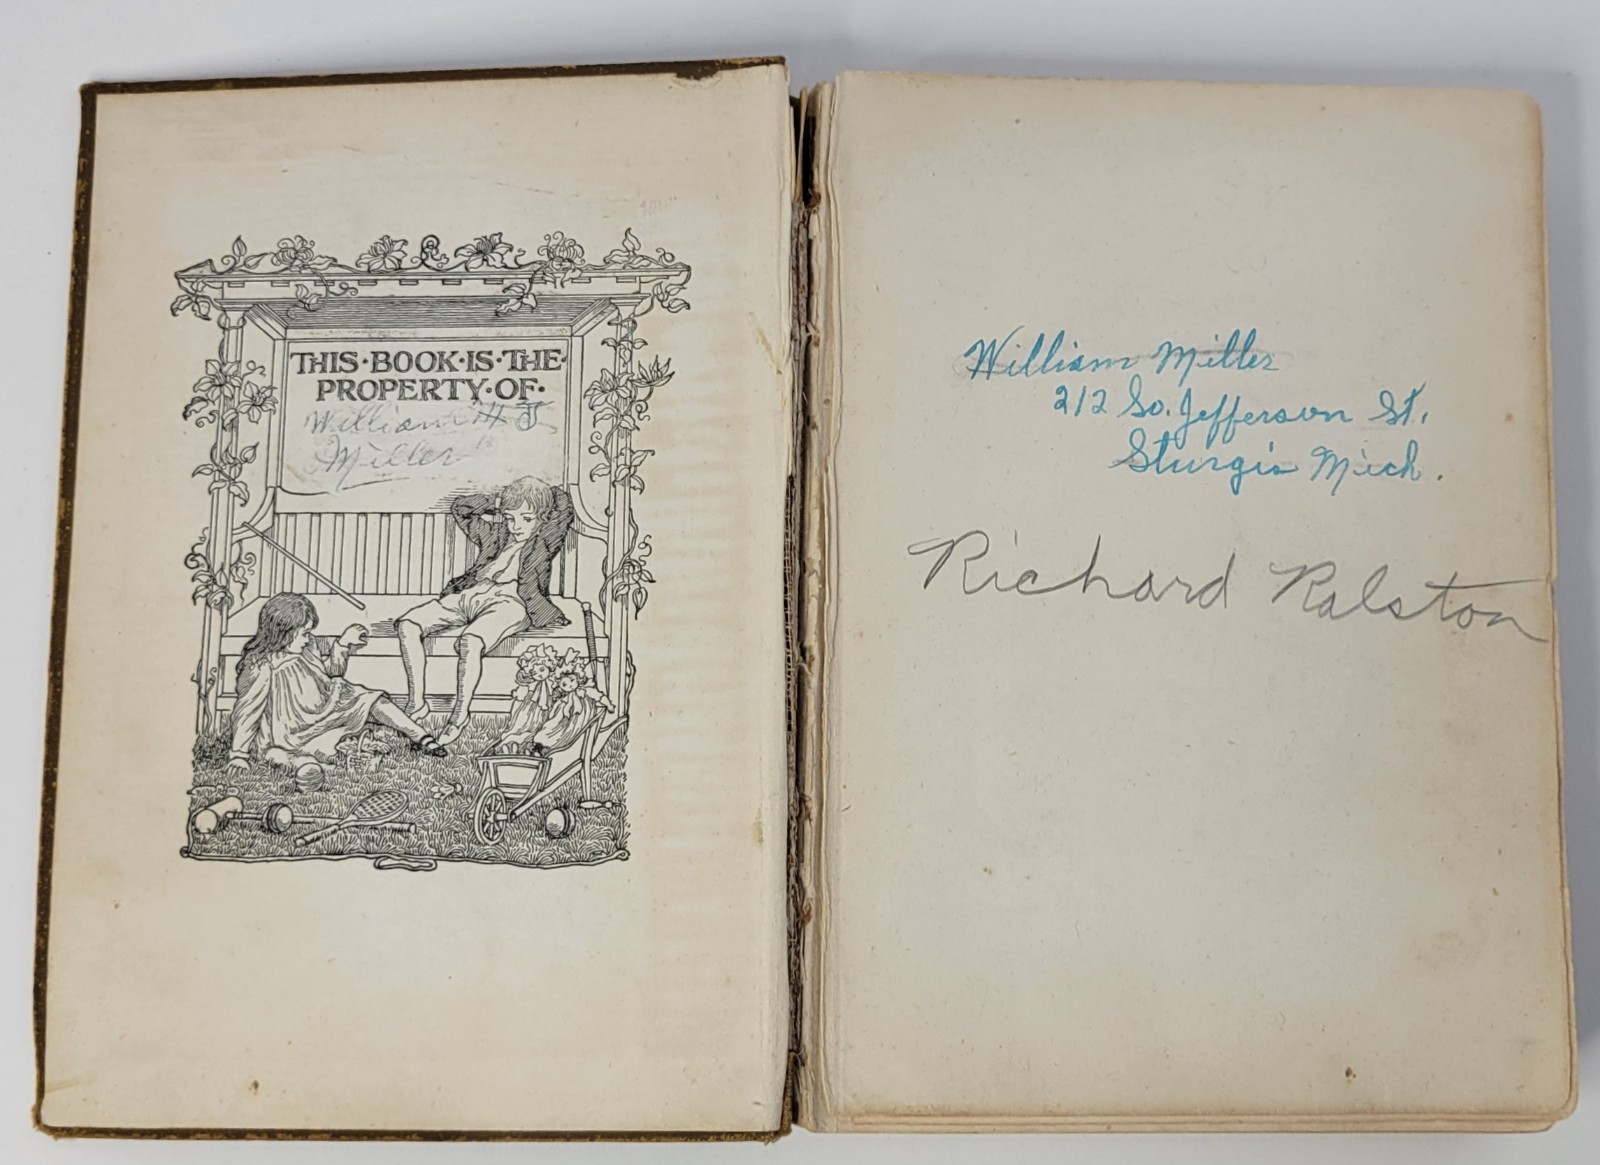 THIS·BOOK·IS·THE·
PROPERTY·OF·
William H
Miller
William Miller
212 So. Jefferson St.
Sturgis Mich.
Richard Ralston